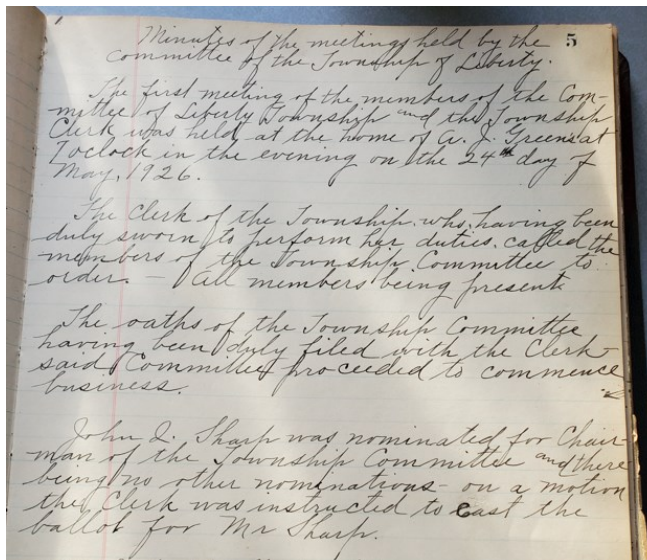 5
Minutes of the meetings held by the
committee of the Township of Liberty.
The first meeting of the members of the Com-
mittee of Liberty Township and the Township
Clerk was held at the home of A. J. Greens at
7 oclock in the evening on the 24th day of
May, 1926.
The Clerk of the Township, who, having been
duly sworn to perform her duties, called the
members of the Township Committee to
order. — All members being present
The oaths of the Township Committee
having been duly filed with the Clerk
said Committee proceeded to commence
business.
John I. Sharp was nominated for Chair-
man of the Township Committee and there
being no other nominations - on a motion
the Clerk was instructed to cast the
ballot for Mr Sharp.